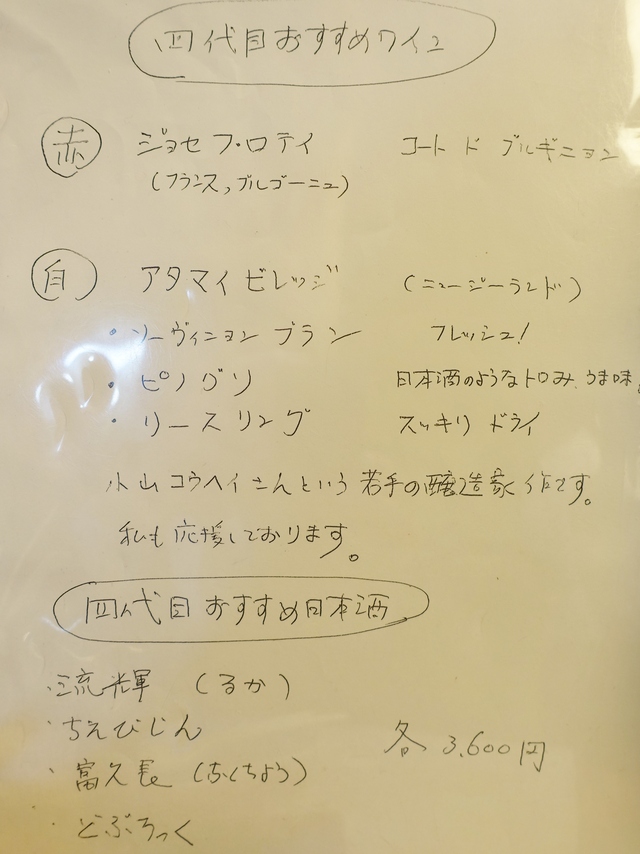 四代目おすすめワイン
赤 ジョセフ・ロティ コート ド ブルギニョン
(フランス,ブルゴーニュ)
白 アタマイビレッジ (ニュージーランド)
・ソーヴィニヨン ブラン フレッシュ!
・ピノグリ 日本酒のようなトロみ、うま味。
・リースリング スッキリ ドライ
小山コウヘイさんという若手の醸造家作です。
私も応援しております。
四代目おすすめ日本酒
・流輝 (るか)
・ちえびじん
各 3,600円
・富久長 (ふくちょう)
・どぶろっく